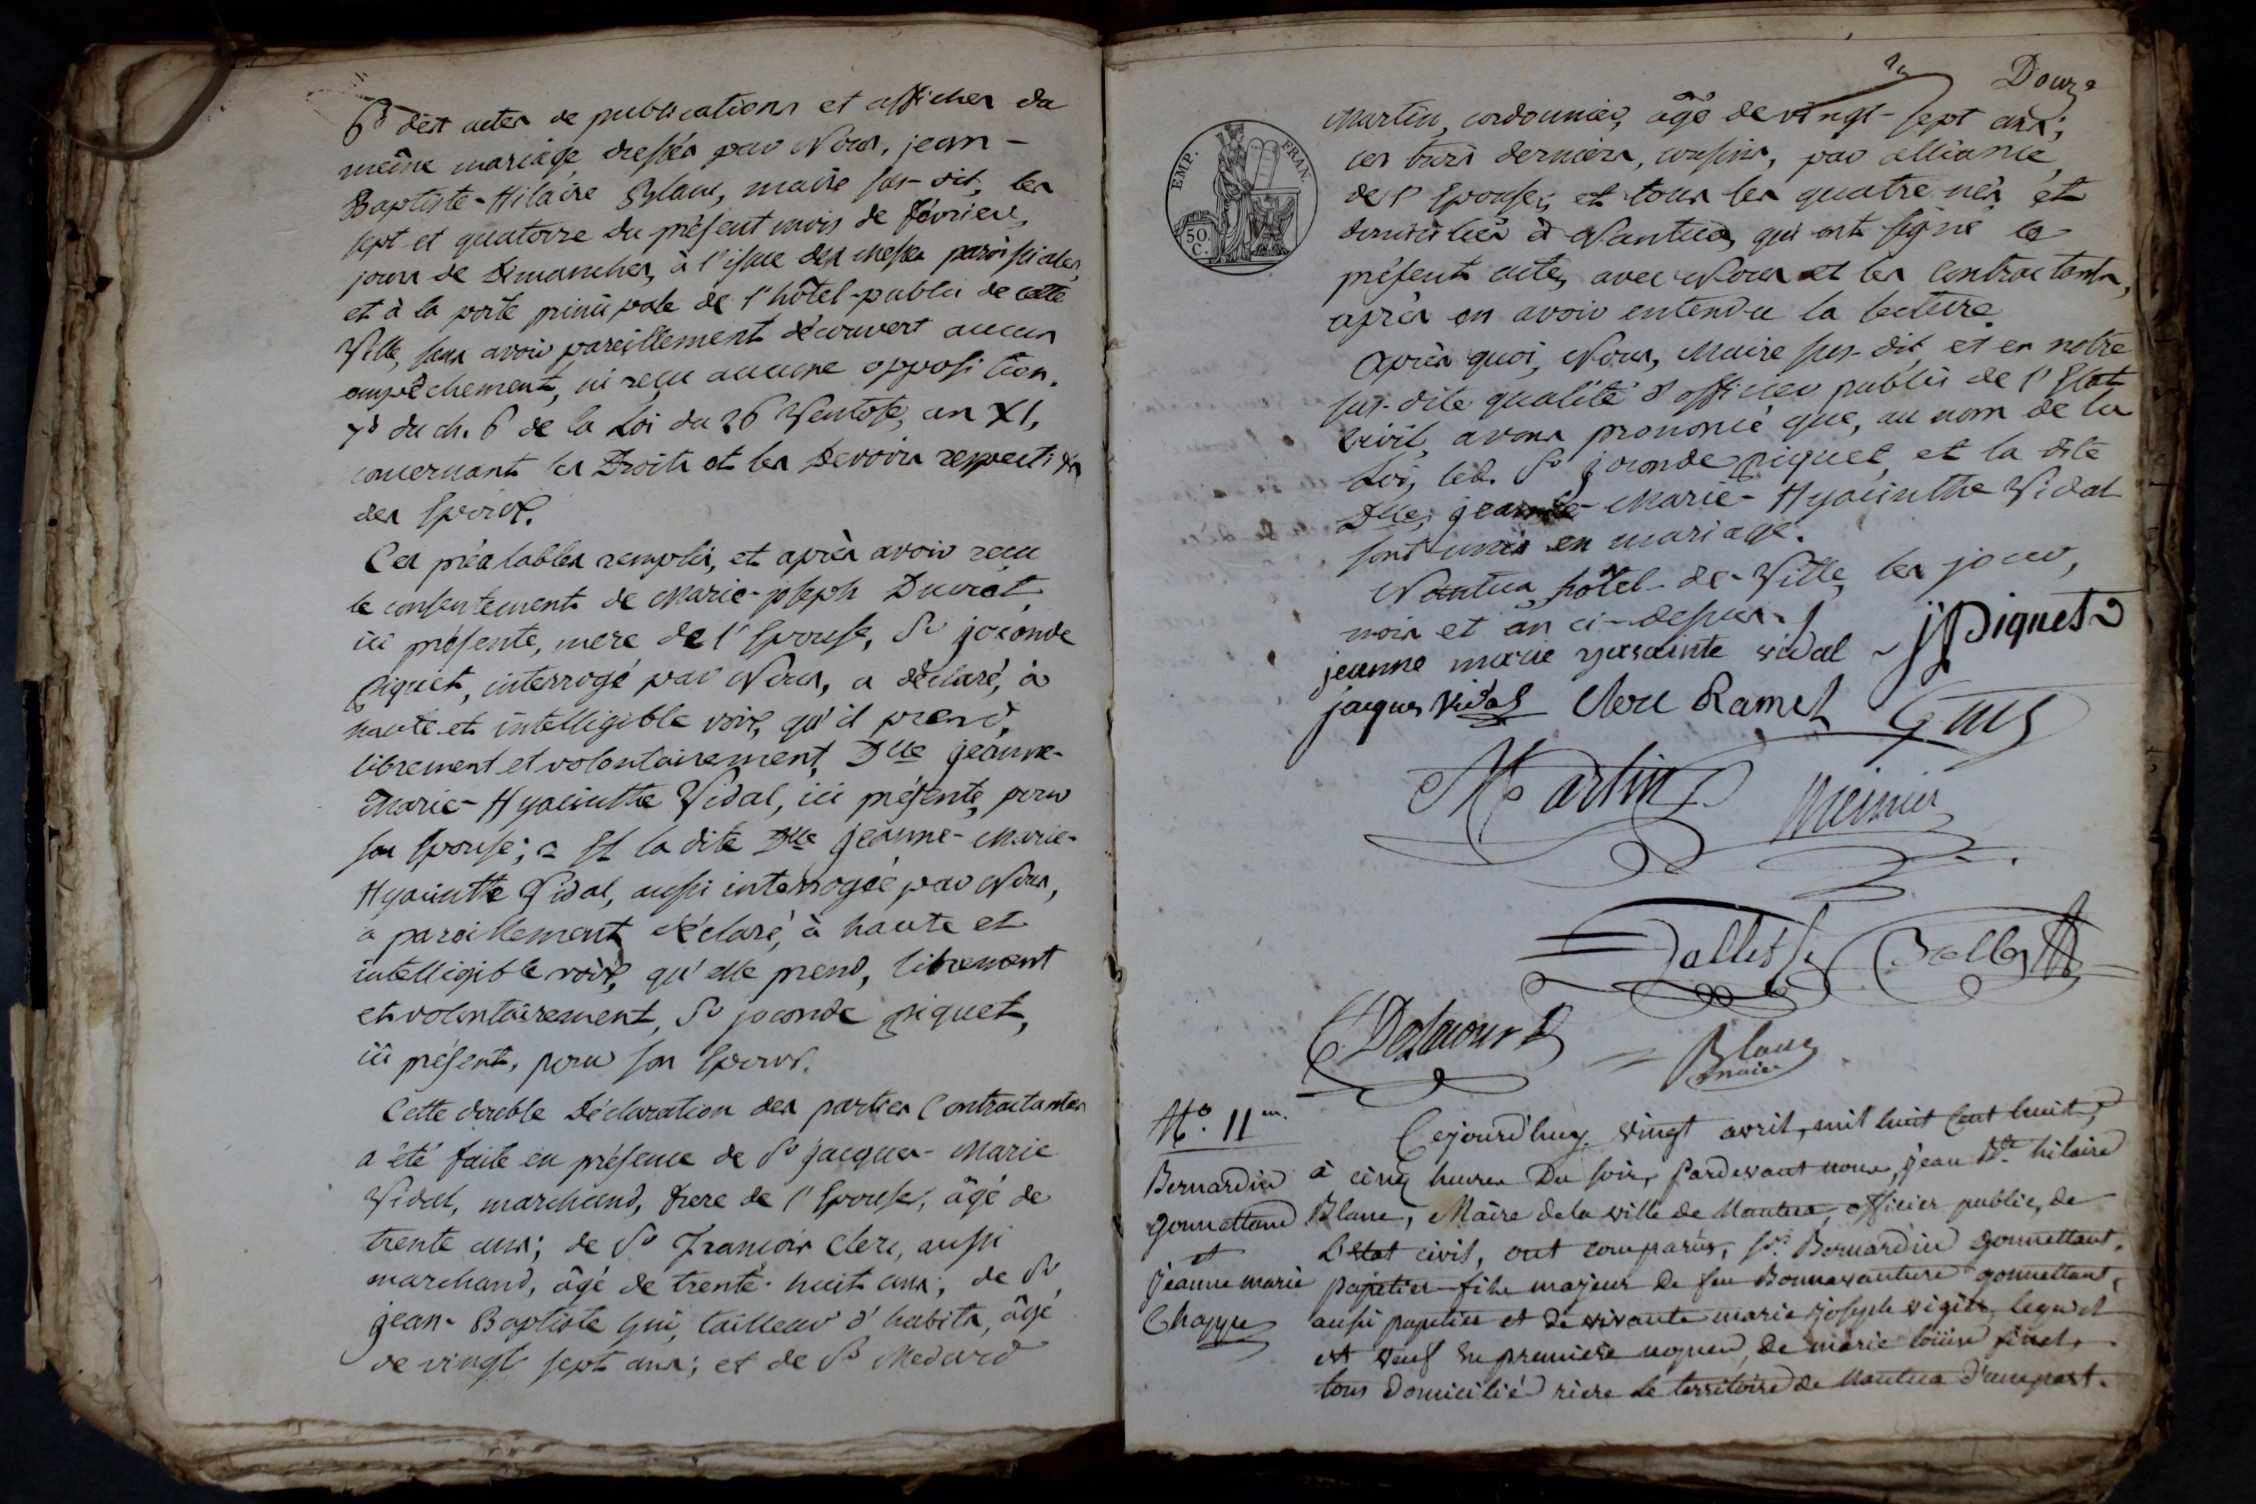 6.° des actes de publications et affiches du
même mariage, dressés par Nous, jean-
Baptiste-Hilaire Blanc, maire sus-dit, les
sept et quatorze du présent mois de février,
jours de Dimanches, à l'issue des messes paroissiales,
et à la porte principale de l'hôtel-public de cette
Ville, sans avoir pareillement découvert aucun
empêchement, ni reçu aucune opposition.
7.° du ch. 6 de la Loi du 26 Ventose, an XI,
concernant les Droits et les Devoirs respectifs
des Epoux.
Ces préalables remplis, et après avoir reçu
le consentement de Marie-joseph Ducret,
ici présente, mere de l'Epouse, Sr joconde
piquet, interrogé par Nous, a déclaré, à
haute et intelligible voix, qu'il prend,
librement et volontairement, Dlle jeanne-
Marie-Hyacinthe Vidal, ici présente, pour
son Epouse; = Et la dite Dlle jeanne-Marie-
Hyacinthe Vidal, aussi interrogée par Nous,
a pareillement déclaré, à haute et
intelligible voix, qu'elle prend, librement
et volontairement, Sr joconde piquet,
ici présent, pour son Epoux.
Cette double Déclaration des parties Contractantes
a été faite en présence de Sr jacques-Marie
Vidal, marchand, frere de l'Epouse, âgé de
trente ans; de Sr François Clerc, aussi
marchand, âgé de trente-huit ans; de Sr
jean-Baptiste Gui, tailleur d'habits, âgé
de vingt sept ans; et de Sr Medard
Douze
Martin, cordonnier, âgé de vingt-sept ans;
ces trois derniers, cousins, par alliance,
de l'Epouse; et tous les quatre nés et
domiciliés à Nantua, qui ont signé le
présent acte, avec Nous et les Contractants,
après en avoir entendu la lecture.
Après quoi, Nous, Maire sus-dit, et en notre
sus-dite qualité d'officier public de l'Etat
Civil, avons prononcé que, au nom de la
Loi, led. Sr joconde piquet, et la dite
Dlle jeanne-Marie-Hyacinthe Vidal
sont unis en mariage.
Nantua, hôtel-de-Ville, les jour,
mois et an ci-dessus.
jeanne marie yasainte vidal jPiquet
jacques Vidal Clerc Ramel Gui
Martin Meinier
EMP. FRAN.
50.
C.
Blanc
maire
N.° 11
Bernardin
gonnettand
et
Jeanne marie
Chappe
Cejourd'huy vingt avril, mil huit Cent huit,
à cinq heures Du soir, Pardevant nous, jean Bte hilaire
Blanc, Maire de la ville de Nantua, officier public de
L'Etat civil, ont comparus, Sr Bernardin gonnettant,
papetier fils majeur de feu Bonnavanture gonnettant,
aussi papetier et de vivante marie josephe lequel
est veuf en premiere nopces, de marie loüise finet,
tous Domicilié riere Le territoire de Nantua D'une part.